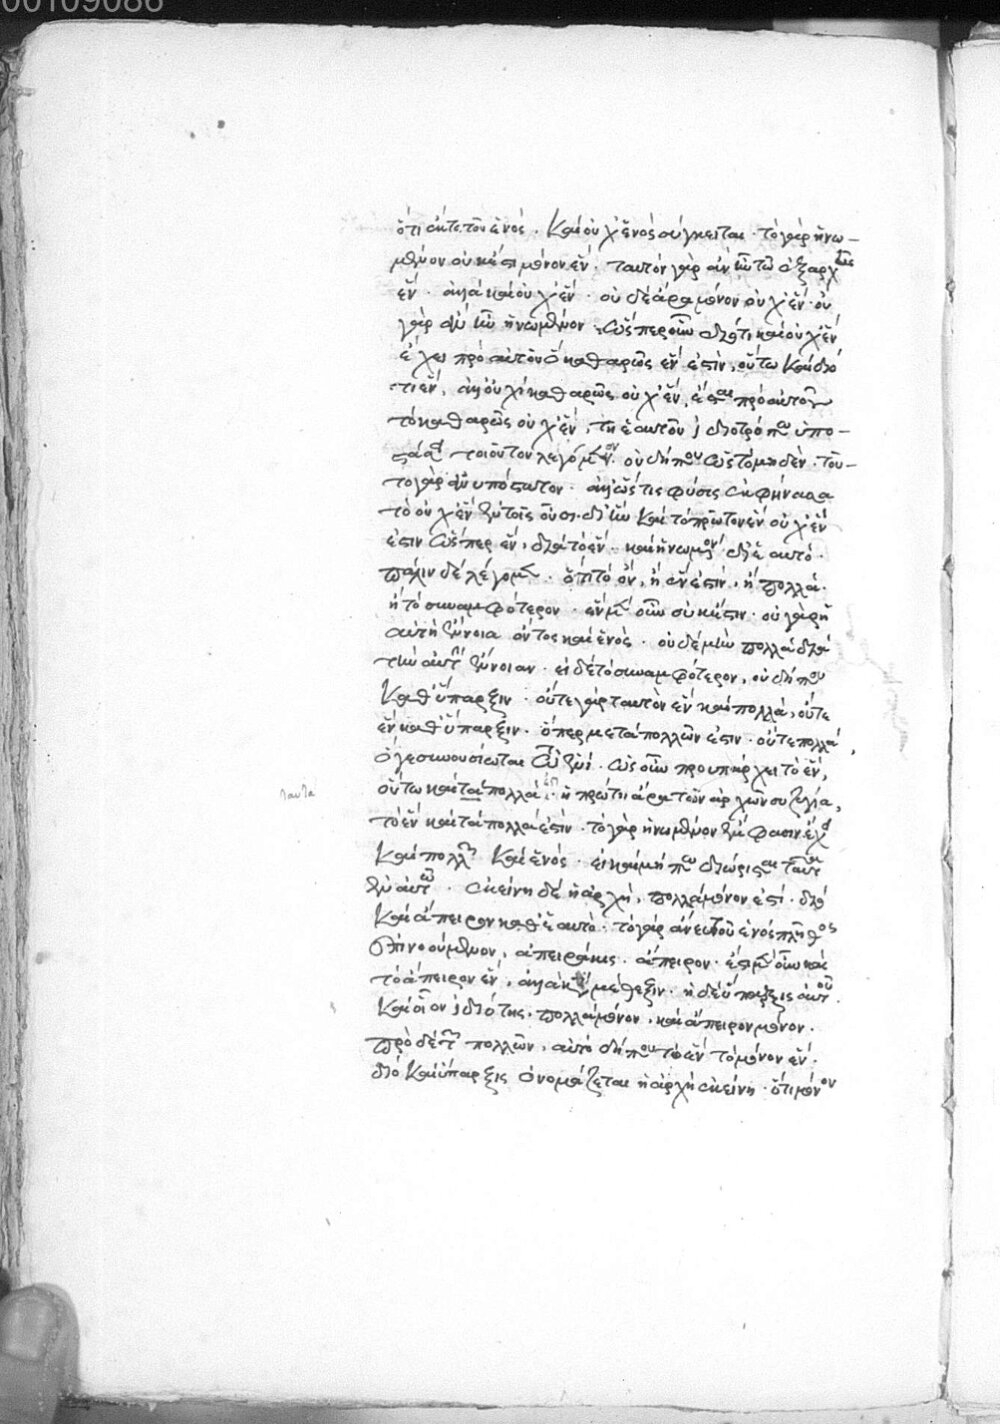 00109086
ὅτι ἔκ τε τοῦ ἑνός. Καὶ οὐχ ἑνὸς σύγκειται. τὸ γὰρ ἡνω-
μένον οὐκ ἔστι μόνον ἕν. ταυτὸν γὰρ ἂν ἦν τῷ ἐξ ἀρχῆς
ἕν. ἀλλὰ καὶ οὐχ ἕν. οὐδὲ ἄρα μόνον οὐχ ἕν. οὐ
γὰρ ἂν ἦν ἡνωμένον. ὥσπερ οὖν διότι καὶ οὐχ ἓν
ἔχει πρὸ αὐτοῦ ὃ καθαρῶς ἕν ἐστιν, οὕτω καὶ διό
τι ἕν, ἀλλ' οὐχὶ καθαρῶς οὐχ ἕν, ἔσται πρὸ αὐτοῦ
τὸ καθαρῶς οὐχ ἕν, τῇ ἑαυτοῦ ἰδιοτρόπου ὑπο-
στάσ τοιοῦτον λεγόμενον. οὐ δήπου ὡς τὸ μηδέν. τοῦ-
το γὰρ ἀνυπόστατον. ἀλλ' ὥς τις φύσις ἐκφήνασα
τὸ οὐχ ἓν ἐν τοῖς οὖσι. δι' ἣν καὶ τὸ πρῶτον ἓν οὐχ ἕν
ἐστιν ὥσπερ ἕν, διὰ τὸ ἕν. καὶ ἡνωμένον δι' ἑαυτό.
πάλιν δὲ λέγομεν. ὅτι τὸ ὄν, ἢ ἕν ἐστιν, ἢ πολλά.
ἢ τὸ συναμφότερον. ἓν μὲν οὖν οὐκ ἔστιν. οὐ γὰρ ἡ
αὐτὴ ἔννοια ὄντος καὶ ἑνός. οὐδὲ μὴν πολλὰ διὰ
τὴν αὐτὴν ἔννοιαν. εἰ δὲ τὸ συναμφότερον, οὐ δήπου
καθ' ὕπαρξιν. οὔτε γὰρ ταυτὸν ἓν καὶ πολλά, οὔτε
ἓν καθ' ὕπαρξιν. ὅπερ μετὰ πολλῶν ἐστιν. οὔτε πολλά,
ὅ γε συνουσίωται τῷ ἑνί. ὡς οὖν προυπάρχει τὸ ἕν,
οὕτω καὶ τὰ πολλά. ἡ πρώτη ἄρα τῶν ἀρχῶν συζυγία,
ταυτα
τὸ ἓν καὶ τὰ πολλά ἐστιν. τὸ γὰρ ἡνωμένον ἔμφασιν ἔχει
καὶ πολλῶν καὶ ἑνός. εἰ καὶ μή που διώρισται ταῦτα
ἐν αὐτῷ. ἐκείνη δὲ ἡ ἀρχή, πολλὰ μόνον ἐστί. διὸ
καὶ ἄπειρον καθ' ἑαυτό. τὸ γὰρ ἄνευ τοῦ ἑνὸς πλῆθος
ἐπινοούμενον, ἀπειράκις ἄπειρον. ἔστι μὲν οὖν καὶ
τὸ ἄπειρον ἕν, ἀλλὰ κατὰ μέθεξιν. ἡ δὲ ὕπαρξις αὐτοῦ.
καὶ οἷον ἰδιότης, πολλὰ μόνον, καὶ ἄπειρον μόνον.
πρὸ δὲ τῶν πολλῶν, αὐτὸ δήπου τὸ ἓν τὸ μόνον ἕν.
διὸ καὶ ὕπαρξις ὀνομάζεται ἡ ἀρχὴ ἐκείνη. ὅτι μόνον